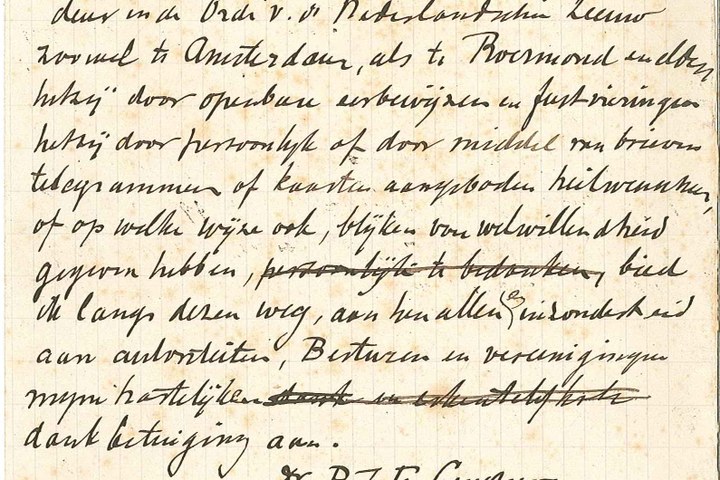 deur in de Orde v. d. Nederlandschen Leeuw
zoowel te Amsterdam, als te Roermond en elders
hetzij door openbare eerbewijzen en feestvieringen
hetzij door persoonlijk of door middel van brieven
telegrammen of kaarten aangeboden heilwenschen,
of op welke wijze ook, blijken van welwillendheid
gegeven hebben, persoonlijk te bedanken, bied
ik langs dezen weg, aan hen allen, inzonderheid
aan autoriteiten, Besturen en vereenigingen
mijne hartelijken dank en erkentelijkheid
dankbetuiging aan.
Dr P. J. H. Cuypers